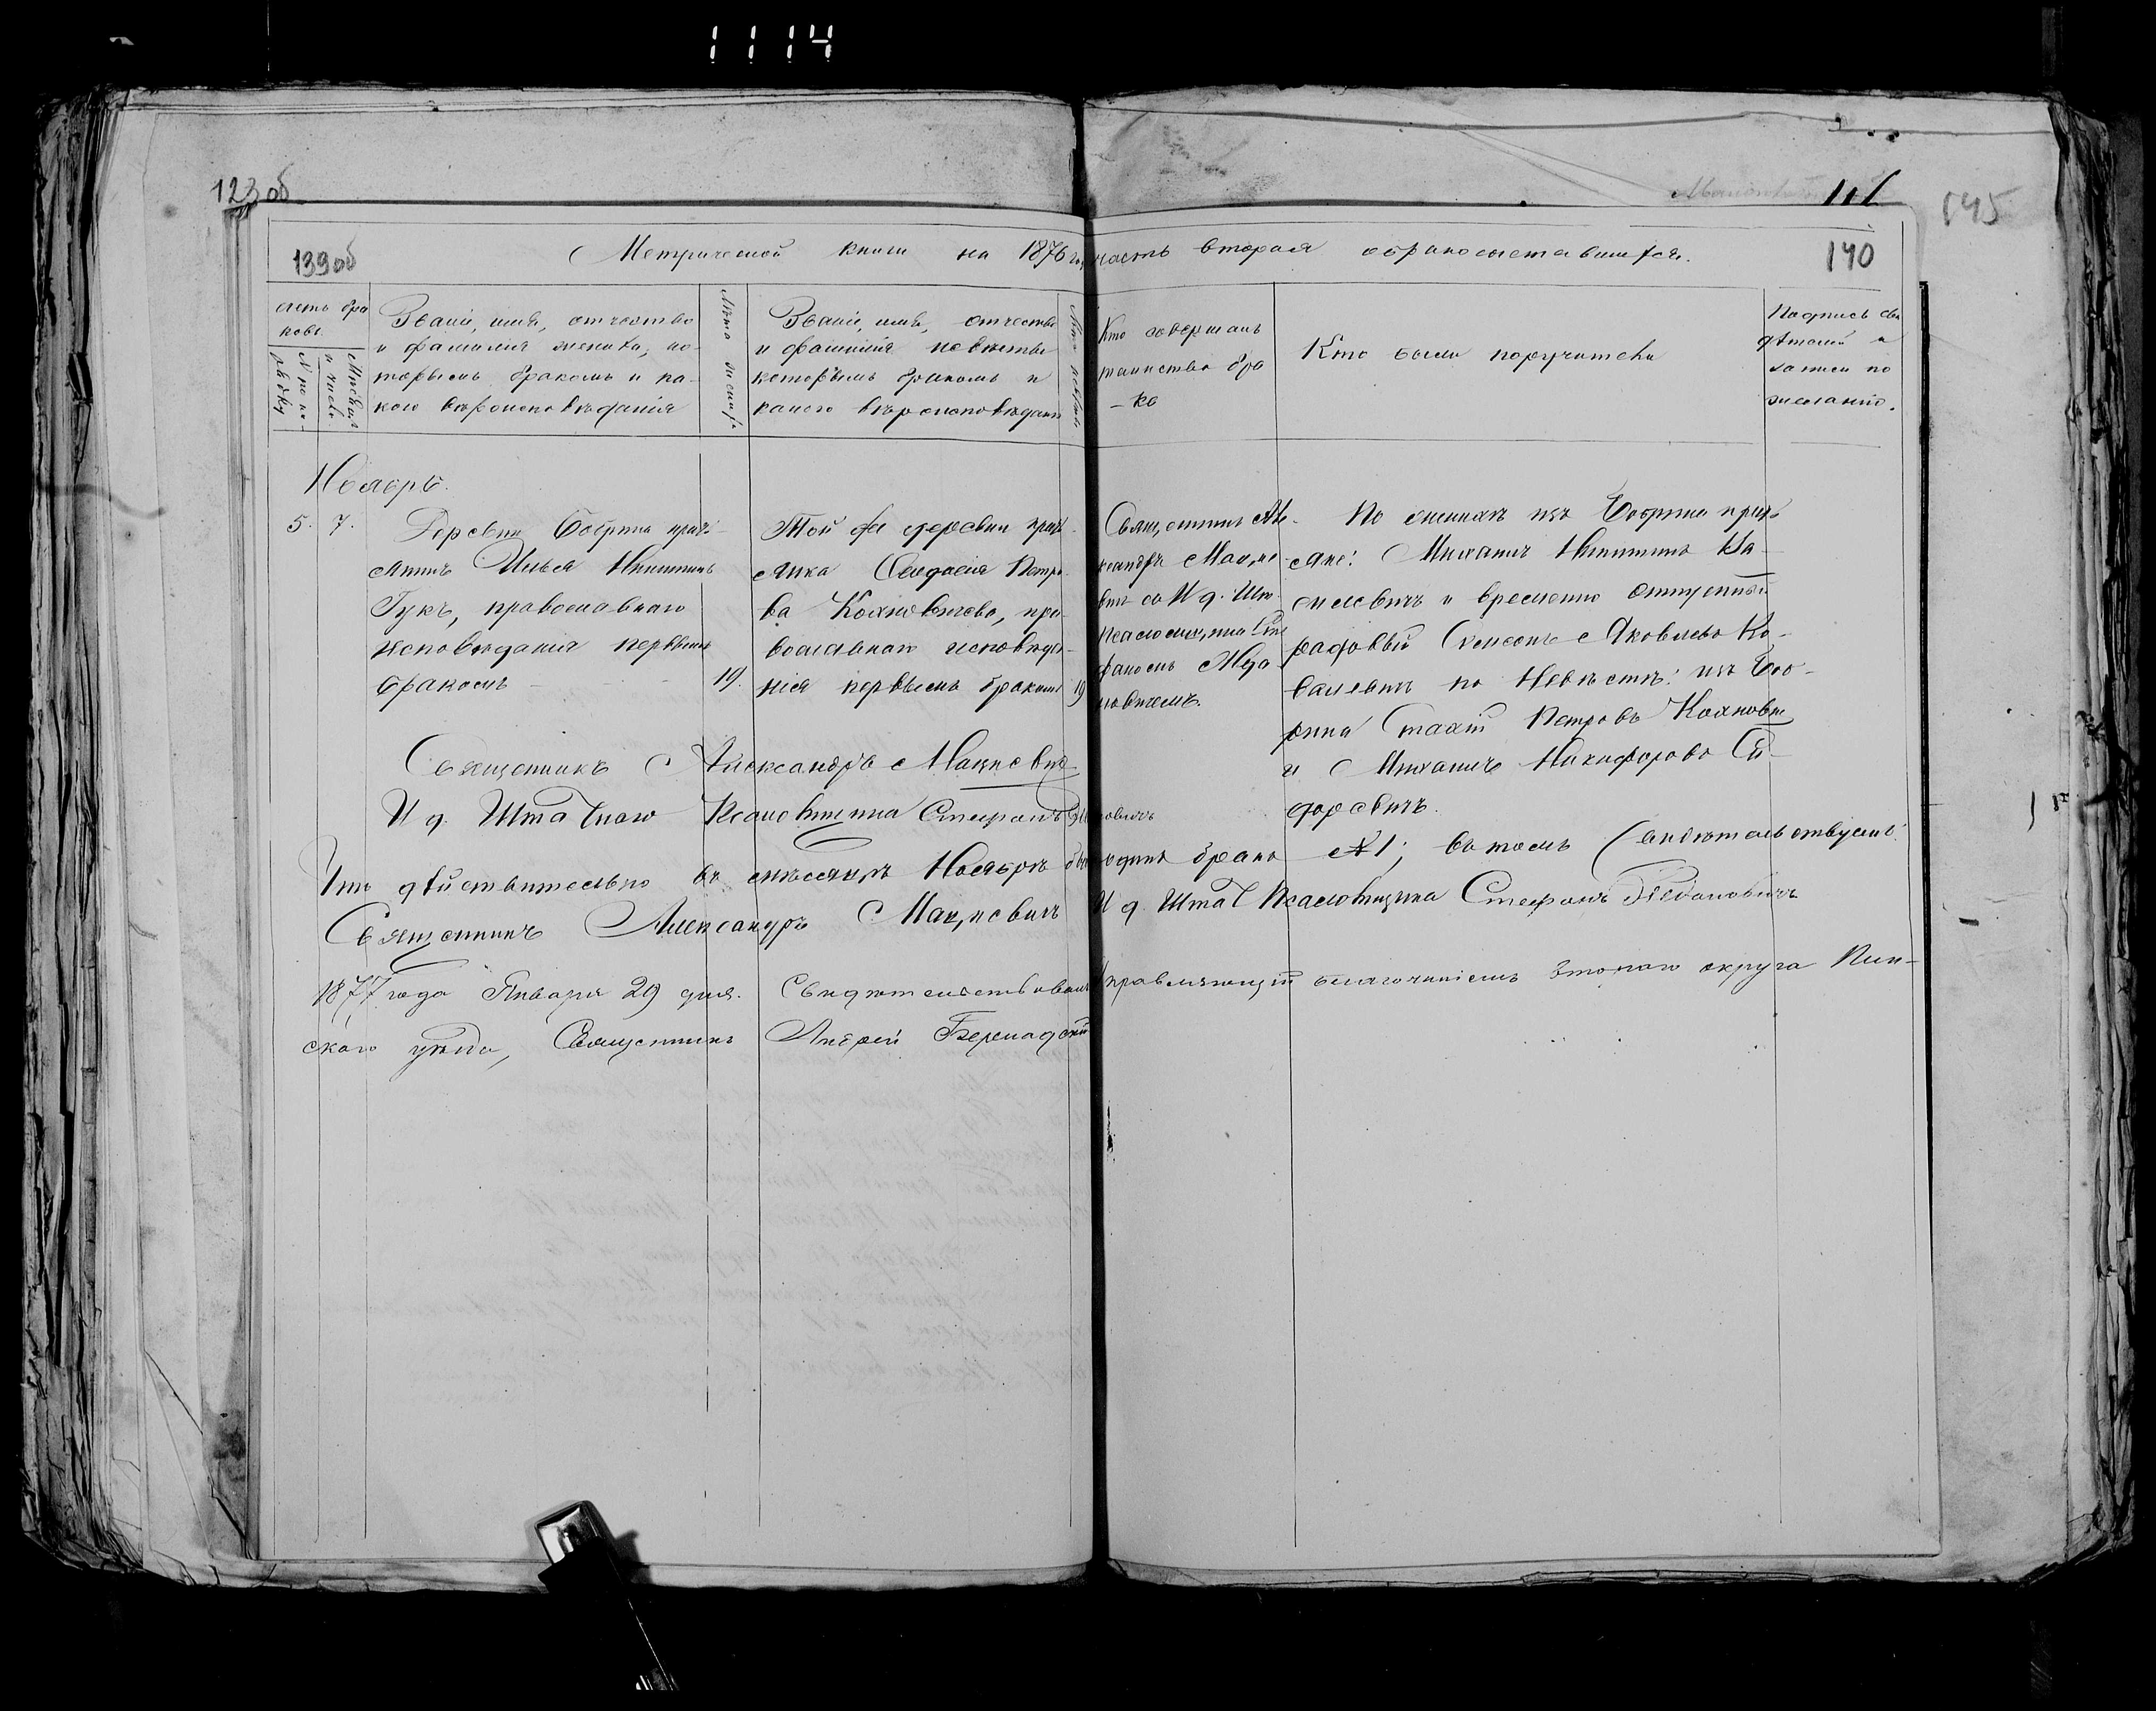 1114
123об
111
145
139об
Метрической книги на 1876 годъ часть вторая о бракосочетавшихся.
140
Счетъ бра
ковъ
№ по по-
рядку
Мѣсяцъ
и число
Званіе, имя, отчество
и фамилія жениха, ко-
торымъ бракомъ и ка-
кого вѣроисповѣданія
Лѣта жениха
Званіе, имя, отчество
и фамилія невѣсты
которымъ бракомъ и
какого вѣроисповѣданія
Лѣта невѣсты
Кто совершалъ
таинство бра
-ка
Кто были поручители
Подпись сви
дѣтелей и
записи по
желанію.
Ноябрь.
5. 7.
Деревни прих-
жанинъ Илья Никитинъ
Гукъ, православнаго
исповѣданія первымъ
бракомъ
19.
Той же деревни прих-
жанка Феодосія Петро-
ва Кохновичева, пра-
вославнаго исповѣда-
нія первымъ бракомъ
19
Священникъ Але-
ксандръ Мацке-
вичъ съ И д. Шт.
псаломщика Сте
фаномъ
новичемъ.
По женихѣ изъ прих
жане: Михаилъ Никитинъ Ва-
силевичъ и временно отпускный
рядовый Семенъ Яковлевъ Ко-
валевичъ по Невѣстѣ: изъ
Петровъ Кохнович
и Михаилъ Никифоровъ Си-
доревичъ.
Священникъ Александръ Мацкевичъ
И д. Штатнаго Псаломщика Стефанъ
Что дѣйствительно въ мѣсяцѣ Ноябрѣ былъ одинъ бракъ № 1; въ томъ свидѣтельствуемъ:
Священникъ Александръ Мацкевичъ И д. Штат Псаломщика Стефанъ
1877 года Января 29 дня. Свидѣтельствовалъ Управляющій благочиніемъ втораго округа Пин-
скаго уѣзда, Священникъ Андрей Бернадскій